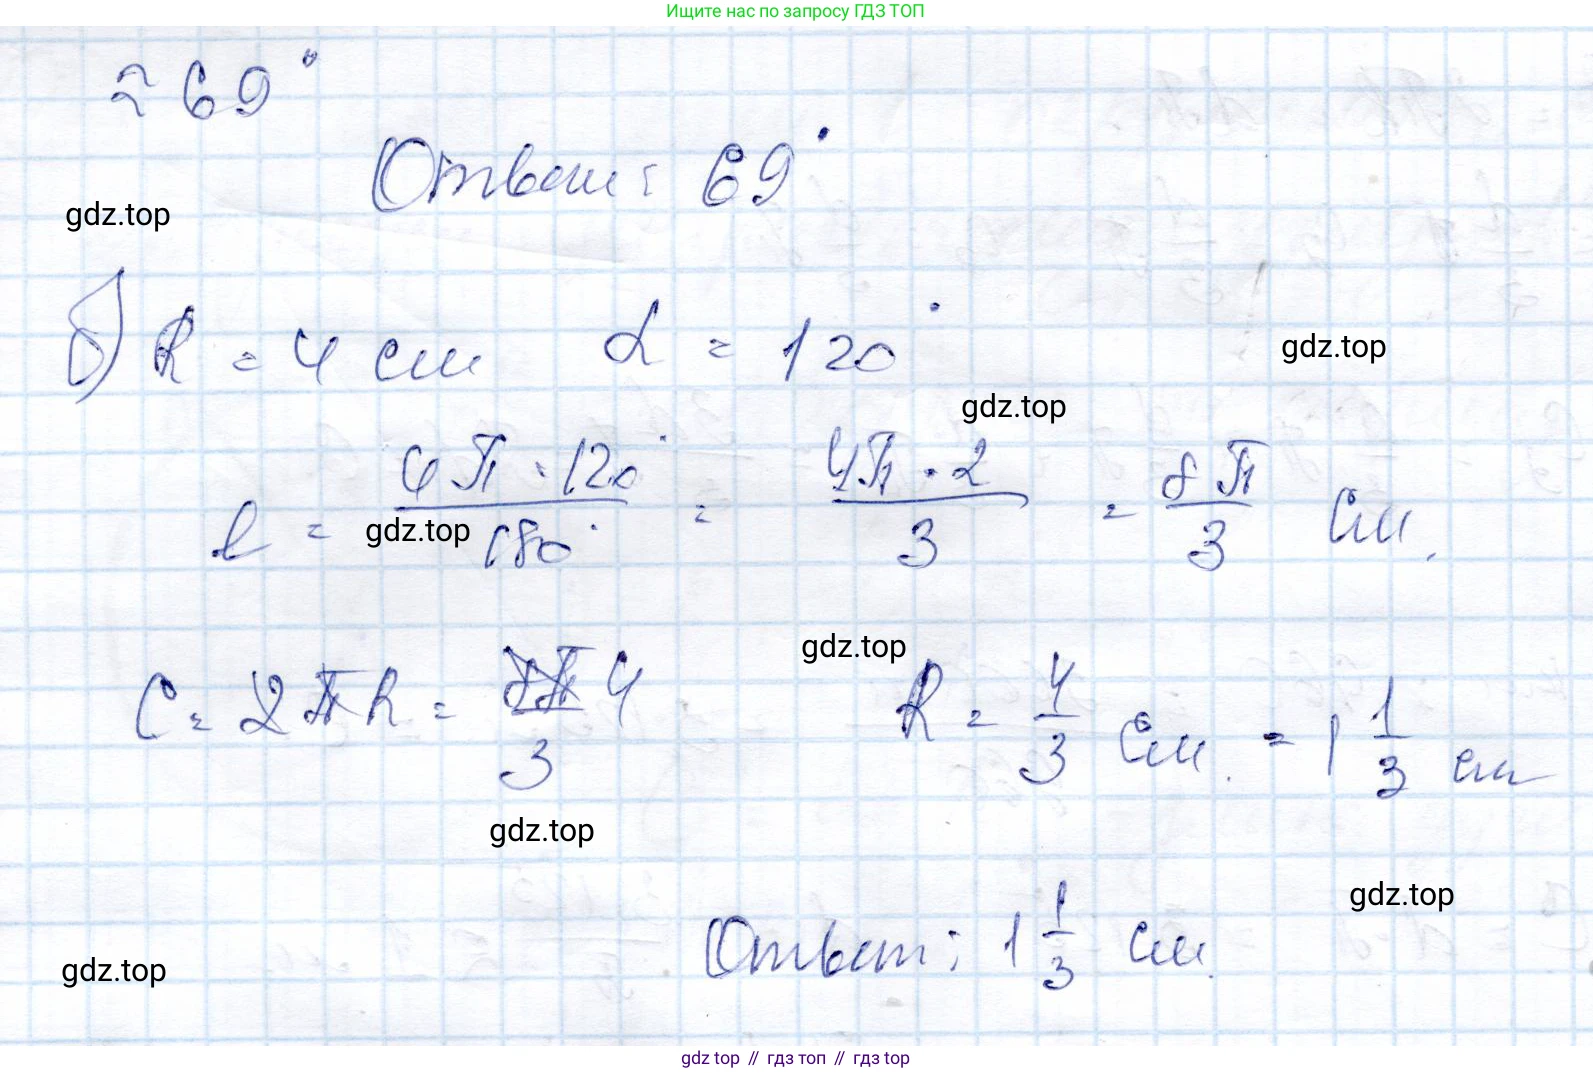 Ищите нас по запросу ГДЗ ТОП
≈ 69°
Ответ: 69°
gdz.top
б) R = 4 см α = 120°
gdz.top
gdz.top
l = 4π · 120° / 180° = 4π · 2 / 3 = 8π / 3 см.
gdz.top
gdz.top
C = 2πR = 8π 4 / 3 R = 4/3 см. = 1 1/3 см
gdz.top
gdz.top
Ответ: 1 1/3 см.
gdz.top
gdz.top // гдз топ // гдз top